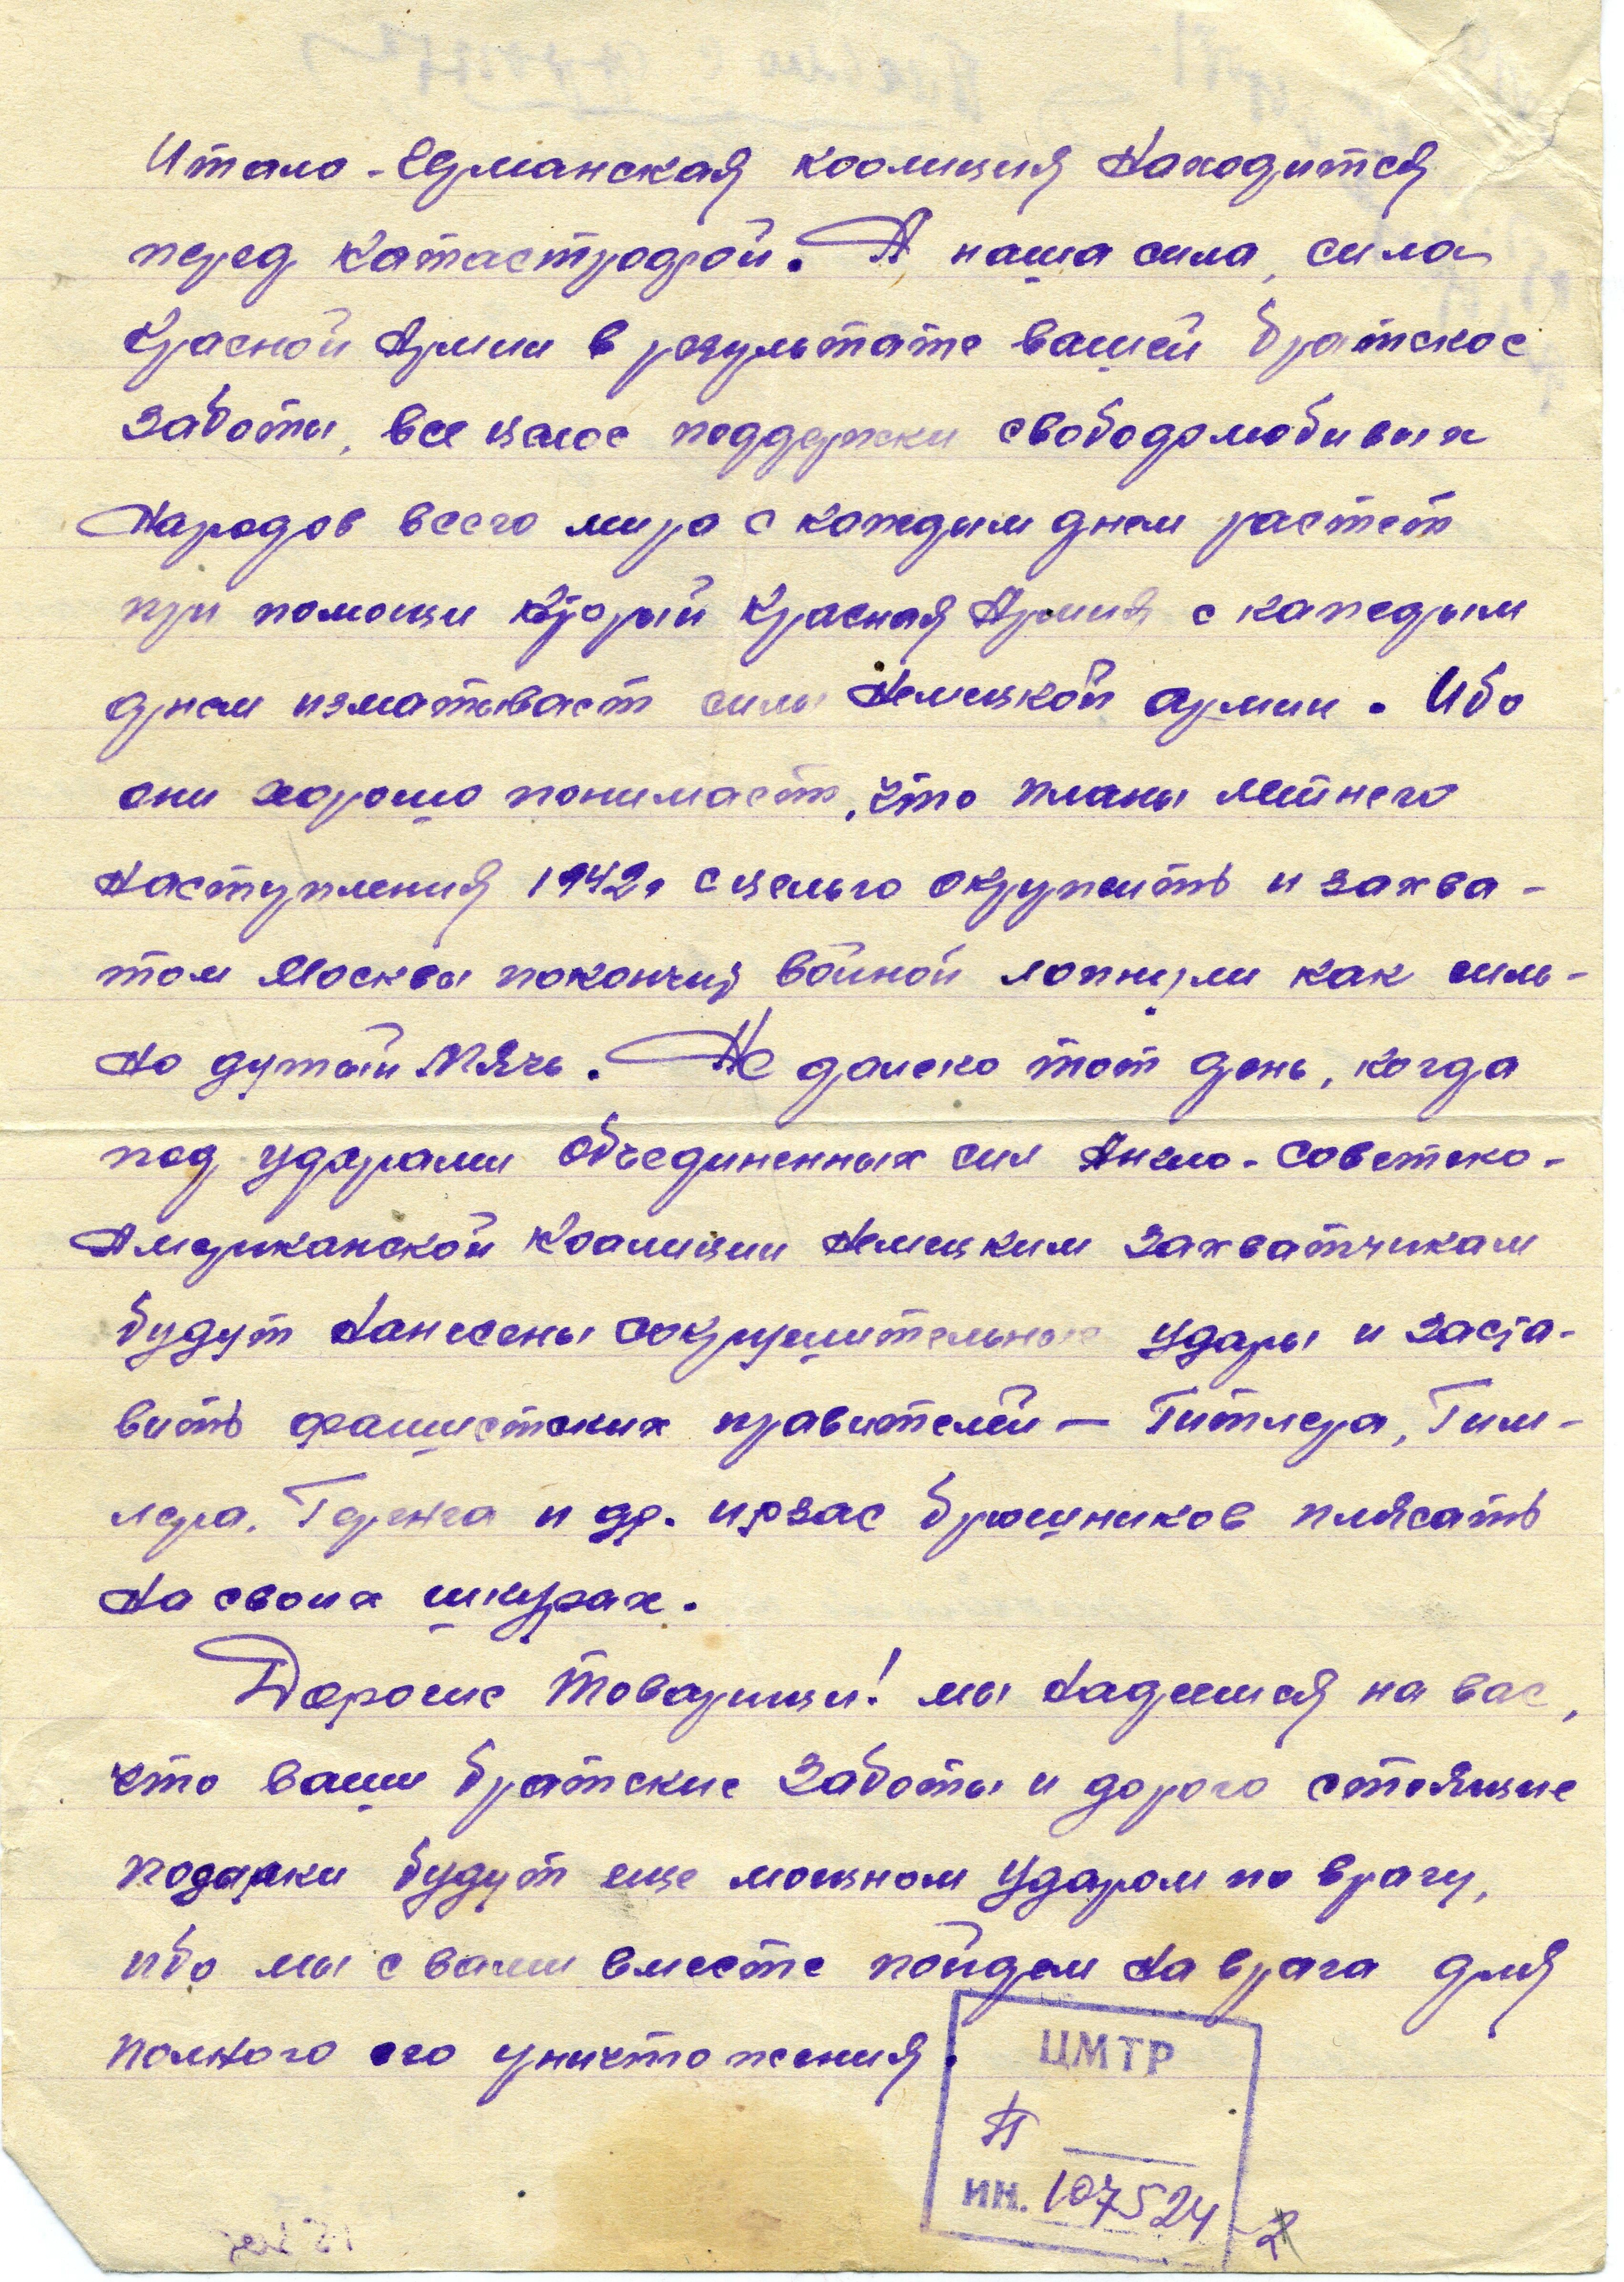 Итало-Германская коолиция находится
перед катастрофой. А наша сила, сила
Красной Армии в результате вашей братское
заботы, все целое поддержки свободолюбивых
народов всего мира с каждым днем растет
при помощи которий Красная Армия с каждым
днем изматывает силы немецкой армии. Ибо
они хорошо понимает, что планы летнего
наступления 1942г с целью окружить и захва-
том Москвы покончив войной лопнули как силь-
но дутый мячь. Не далеко тот день, когда
под ударами объединенных сил Англо-Советско-
Американской коалиции немецким захватчикам
будут нанесены сокрушительные удары и заста-
вить фашистских правителей — Гитлера, Гим-
лера, Геренга и др. брюшников плясать
на своих шкурах.
Дорогие товарищи! мы надеемся на вас,
что ваши братские заботы и дорого стоящие
подарки будут еще мощном ударом по врагу,
ибо мы с вами вместе пойдем на врага для
полного его уничтожения.
ЦМТР
ИН. 107524